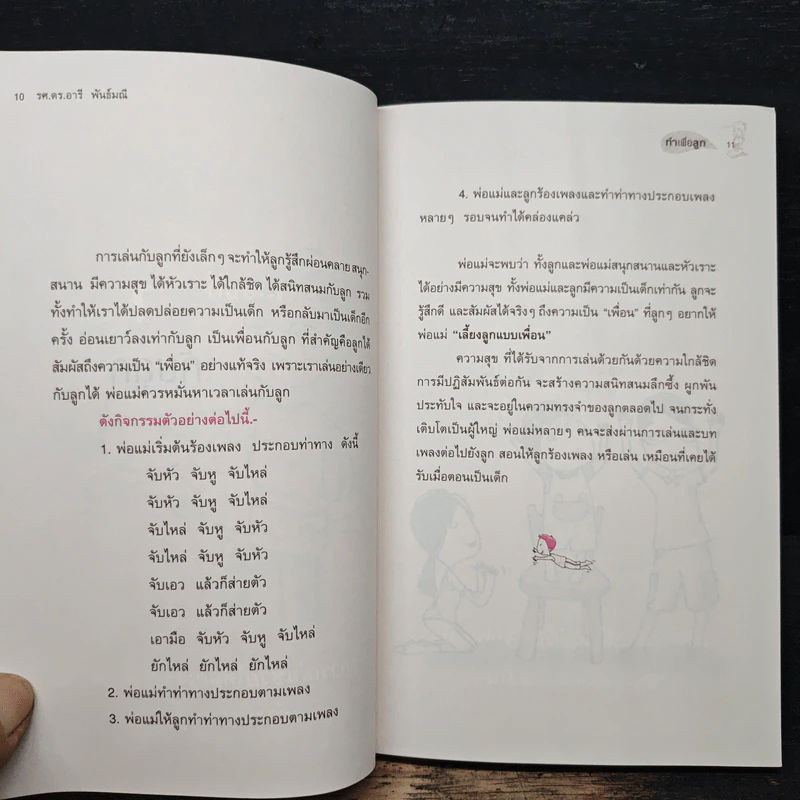 10 รศ.ดร.อารี พันธ์มณี
การเล่นกับลูกที่ยังเล็กๆ จะทำให้ลูกรู้สึกผ่อนคลาย สนุก-
สนาน มีความสุข ได้หัวเราะ ได้ใกล้ชิด ได้สนิทสนมกับลูก รวม
ทั้งทำให้เราได้ปลดปล่อยความเป็นเด็ก หรือกลับมาเป็นเด็กอีก
ครั้ง อ่อนเยาว์ลงเท่ากับลูก เป็นเพื่อนกับลูก ที่สำคัญคือลูกได้
สัมผัสถึงความเป็น “เพื่อน” อย่างแท้จริง เพราะเราเล่นอย่างเดียว
กับลูกได้ พ่อแม่ควรหมั่นหาเวลาเล่นกับลูก
ดังกิจกรรมตัวอย่างต่อไปนี้.-
1. พ่อแม่เริ่มต้นร้องเพลง ประกอบท่าทาง ดังนี้
จับหัว จับหู จับไหล่
จับหัว จับหู จับไหล่
จับไหล่ จับหู จับหัว
จับไหล่ จับหู จับหัว
จับเอว แล้วก็ส่ายตัว
จับเอว แล้วก็ส่ายตัว
เอามือ จับหัว จับหู จับไหล่
ยักไหล่ ยักไหล่ ยักไหล่
2. พ่อแม่ทำท่าทางประกอบตามเพลง
3. พ่อแม่ให้ลูกทำท่าทางประกอบตามเพลง
ทำเพื่อลูก 11
4. พ่อแม่และลูกร้องเพลงและทำท่าทางประกอบเพลง
หลายๆ รอบจนทำได้คล่องแคล่ว
พ่อแม่จะพบว่า ทั้งลูกและพ่อแม่สนุกสนานและหัวเราะ
ได้อย่างมีความสุข ทั้งพ่อแม่และลูกมีความเป็นเด็กเท่ากัน ลูกจะ
รู้สึกดี และสัมผัสได้จริงๆ ถึงความเป็น “เพื่อน” ที่ลูกๆ อยากให้
พ่อแม่ “เลี้ยงลูกแบบเพื่อน”
ความสุข ที่ได้รับจากการเล่นด้วยกันด้วยความใกล้ชิด
การมีปฏิสัมพันธ์ต่อกัน จะสร้างความสนิทสนมลึกซึ้ง ผูกพัน
ประทับใจ และจะอยู่ในความทรงจำของลูกตลอดไป จนกระทั่ง
เติบโตเป็นผู้ใหญ่ พ่อแม่หลายๆ คนจะส่งผ่านการเล่นและบท
เพลงต่อไปยังลูก สอนให้ลูกร้องเพลง หรือเล่น เหมือนที่เคยได้
รับเมื่อตอนเป็นเด็ก